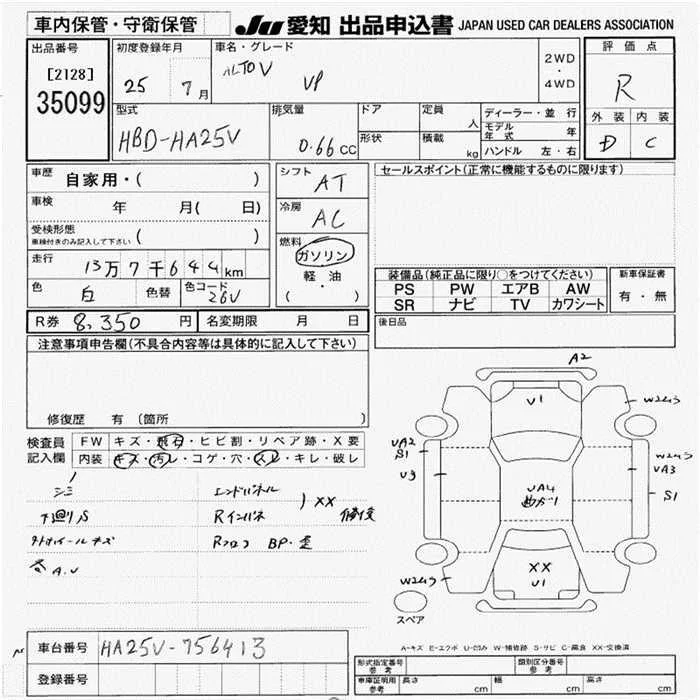 車内保管・守衛保管
JU 愛知 出品申込書 JAPAN USED CAR DEALERS ASSOCIATION
出品番号
[2128]
35099
初度登録年月
25 7月
車名・グレード
ALTO V VP
2WD
・
4WD
評価点
R
外装 内装
D C
型式
HBD-HA25V
排気量
0.66cc
ドア
形状
定員 人
積載 kg
ディーラー・並行
モデル年式 年
ハンドル 左・右
車歴 自家用・( )
車検 年 月( 日)
受検形態
車検付きのみ記入して下さい ( )
走行 13万7千644km
色 白 色替 色コード 26V
シフト AT
冷房 AC
燃料
ガソリン
軽・油
( ・ )
セールスポイント(正常に機能するものに限ります)
装備品(純正品に限り○をつけてください)
PS PW エアB AW
SR ナビ TV カワシート
新車保証書
有・無
R券 8,350円 名変期限 月 日
後日品
注意事項申告欄(不具合内容等は具体的に記入して下さい)
修復歴 有 (箇所 )
検査員 FW キズ・飛石・ヒビ割・リペア跡・X要
記入欄 内装 キズ・汚レ・コゲ・穴・スレ・キレ・破レ
シミ エンドパネル
下廻りS Rインパネ XX 修復
外ホイールキズ Rフロア BP・歪
A.U
A2
U1
W2U3
UA2
S1
U3
UA4
曲がり1
W2U3
UA3
S1
XX
U1
W2U3
スペア
A-キズ E-エクボ U-凹み W-補修跡 S-サビ C-腐食 XX-交換済
車台番号 HA25V-756413
登録番号
型式指定番号
参考
類別区分番号
参考
車庫証明用
参考
長さ cm 幅 cm 高さ cm